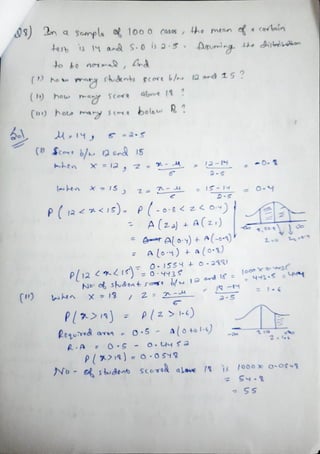 Q8) In a sample of 1000 cases, the mean of a certain
test is 14 and S.D is 2.5. Assuming the distribution
to be normal, find
(i) how many students score b/w 12 and 15?
(ii) how many score above 18?
(iii) how many score below 8?
Sol.
μ = 14, σ = 2.5
(i) Score b/w 12 and 15
when x = 12, z = x-μ/σ = 12-14/2.5 = -0.8
when x = 15, z = x-μ/σ = 15-14/2.5 = 0.4
P(12<x<15) = P(-0.8<z<0.4)
= A(z2) + A(z1)
= A(0.4) + A(-0.8)
= A(0.4) + A(0.8)
= 0.1554 + 0.2881
P(12<x<15) = 0.4435
No. of student score b/w 12 and 15 = 1000 x 0.4435
= 443.5 =
(ii) when x = 18, z = x-μ/σ = 18-14/2.5 = 1.6
P(x>18) = P(z>1.6)
Required area = 0.5 - A(0 to 1.6)
R.A = 0.5 - 0.4452
P(x>18) = 0.0548
No. of students scored above 18 is 1000 x 0.0548
= 54.8
= 55